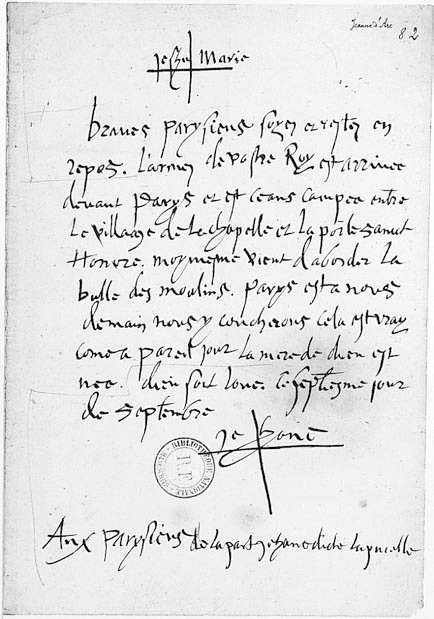 Jeanne d'Arc
82
Jeshus Marie
braves parysiens soyez et restez en
repos. l'armee de vostre Roy est arrivee
devant parys et est ceans campee entre
Le village de la chapelle et la porte Sainct
Honore. moymesme vient d'aborder La
butte des moulins. parys est a nous
demain nous y coucherons cela est vray
come a pareil jour la mere de dieu est
nee. dieu soit loue. Ce septiesme jour
de Septembre
Jehane
BIBLIOTHEQUE NATIONALE
R.F
Aux parysiens de la part Jehane dicte la pucelle